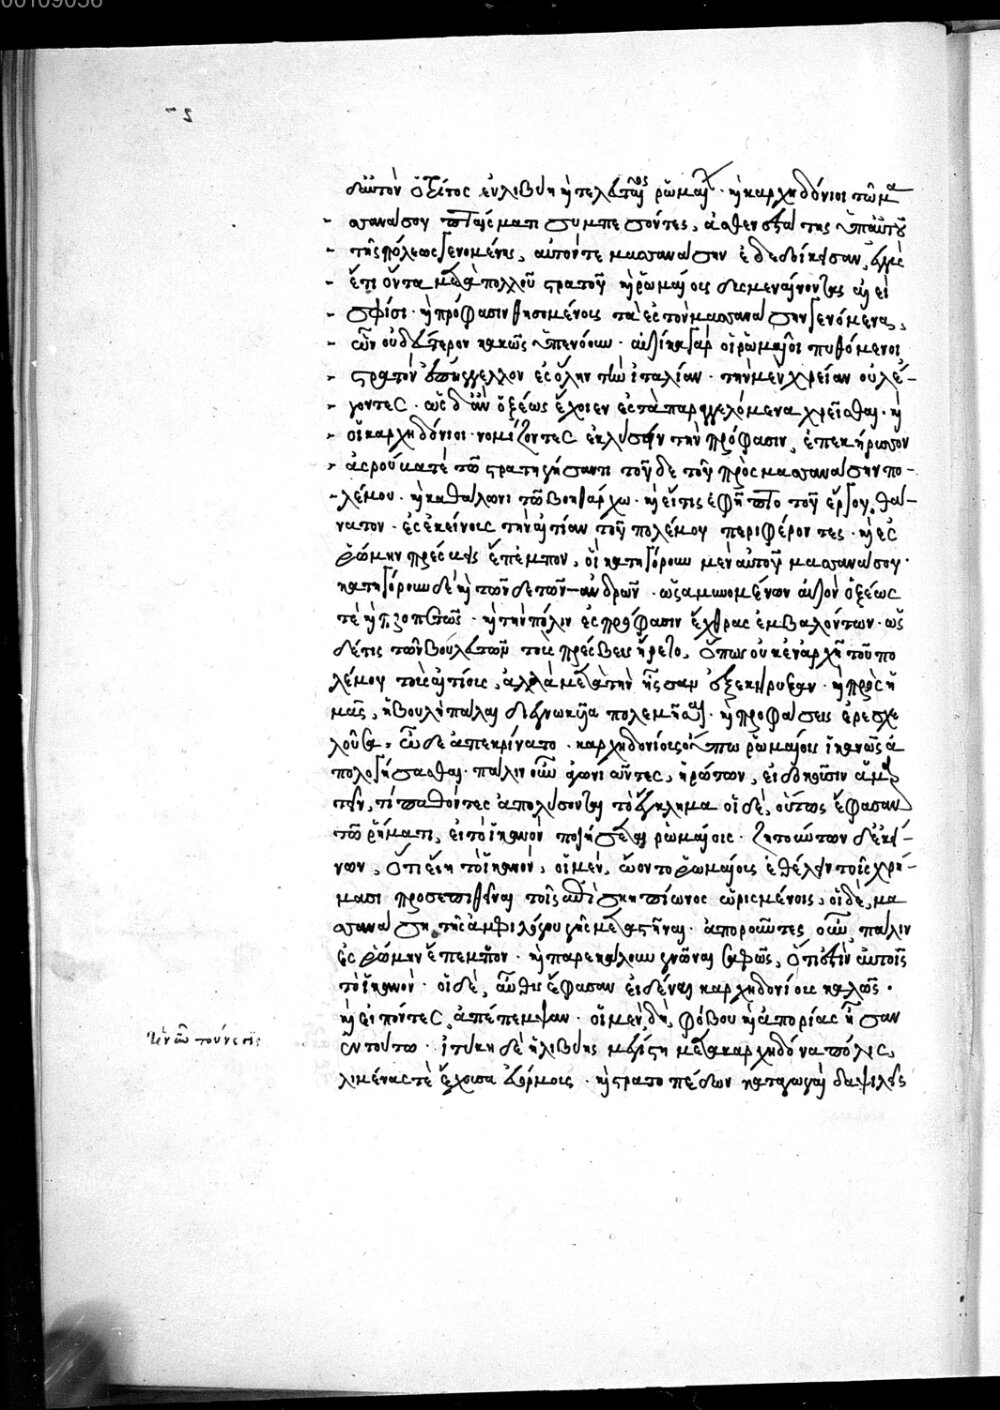 δ αὐτὸν ὁ τρίτος ἐν λιβύῃ καὶ τελευταῖος ῥωμαίων · καὶ καρχηδόνιοι τῶ μα
σσανάσσου πταίσματι συμπεσόντες, ἀσθενεστάτης ὑπ' αὐτοῦ
τῆς πόλεως γενομένης, αὐτόντε μασσανάσσην ἐδεδοίκεσαν, ἐγγὺς
ἔτι ὄντα μετὰ πολλοῦ στρατοῦ καὶ ῥωμαίοις δυσμεναίνοντας αἰεὶ
σφίσι · καὶ πρόφασιν θησομένοις τὰ ἐς τὸν μασσανάσσην γενόμενα,
ὧν οὐδέτερον κακῶς ὑπενόουν · αὐτίκα γὰρ οἱ ῥωμαῖοι πυθόμενοι
στρατὸν ἐπήγγελλον ἐς ὅλην τὴν ἰταλίαν · τὴν μὲν χρείαν οὐ λέ-
γοντες · ὡς δ' ἂν ὀξέως ἔχοιεν ἐς τὰ παραγγελόμενα χρῆσθαι · καὶ
οἱ καρχηδόνιοι · νομίζοντες ἐκλύσειν τὴν πρόφασιν, ἐπεκήρυσσον
ἀσρούβα τὲ τῶ στρατηγήσαντι τοῦ δε τοῦ πρὸς μασσανάσσην πο-
λέμου · καὶ καθάλωνι τῶ βοηθάρχω · καὶ εἴ τις ἐφῆπτο τοῦ ἔργου, θά-
νατον · ἐς ἐκείνους τὴν αἰτίαν τοῦ πολέμου περιφέροντες · καὶ ἐς
ῥώμην πρέσβεις ἔπεμπον, οἳ κατηγόρουν μὲν αὐτοῦ μασσανάσσου ·
κατηγόρουν δὲ καὶ τῶν δε τῶν ἀνδρῶν · ὡς ἀμυνομένων αὐτὸν ὀξέως
τὲ καὶ προπετῶς · καὶ τὴν πόλιν ἐς πρόφασιν ἔχθρας ἐμβαλόντων · ὡς
δέ τις τῶν βουλευτῶν τοὺς πρέσβεις ἤρετο, ὅπως οὐκ ἐν ἀρχῇ τοῦ πο
λέμου τοὺς αἰτίους, ἀλλὰ μετὰ τὴν ἧσσαν ἐξεκήρυξαν · καὶ πρὸς ἡ
μᾶς, ἡ βουλὴ πάλαι διεγνωκυῖα πολεμῆσαι · καὶ προφάσεις ἐρεσχε
λοῦσα, ὧδε ἀπεκρίνατο · καρχηδονίους οὔπω ῥωμαίοις ἱκανῶς ἀ
πολογήσασθαι · πάλιν οὖν ἀγωνιῶντες, ἠρώτων, εἰ δοκοῦσιν ἁμαρ
τεῖν, τί παθόντες ἀπολύσονται τὸ ἔγκλημα οἱ δὲ, οὕτως ἔφασαν
τῶ ῥήματι, εἰ τὸ ἱκανὸν ποιήσετε ῥωμαίοις · ζητούντων δ' ἐκεί
νων, ὅτι εἴη τὸ ἱκανόν, οἱ μὲν, ὤοντο ῥωμαίους ἐθέλειν τοῖς χρή-
μασι προσεπιθεῖναι τοῖς ἀπὸ σκηπίωνος ὡρισμένοις, οἱ δὲ, μα
σσανάσση τῆς ἀμφιλόγου γῆς μεταστῆναι · ἀποροῦντες οὖν, πάλιν
ἐς ῥώμην ἔπεμπον · καὶ παρεκάλουν γνῶναι σαφῶς, ὅ τι ἐστὶν αὐτοῖς
τὸ ἱκανόν · οἱ δὲ, αὖθις ἔφασαν εἰδέναι καρχηδονίους καλῶς ·
καὶ εἰπόντες, ἀπέπεμψαν · οἱ μὲν δὴ, φόβου καὶ ἀπορίας ἦσαν
ἐν τούτω · ἰτύκη δὲ ἡ λιβύης μεγίστη μετὰ καρχηδόνα πόλις,
Ἰτύκη τούνεσις
λιμένας τὲ ἔχουσα εὐόρμους · καὶ στρατοπέδων καταγωγὰς δαψιλεῖς